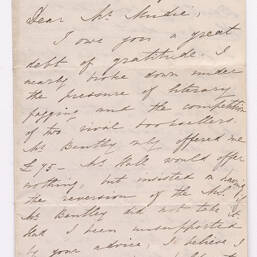 Dear Mr. Mudie,
I owe you a great
debt of gratitude. I
nearly broke down under
the pressure of literary
fagging and the competition
of two rival booksellers.
Mr Bentley only offered me
£75 – Mr Hall would offer
nothing, but insisted on having
the reversion of the MS. if
Mr Bentley did not take it.
Had I been unsupported
by your advice, I believe I